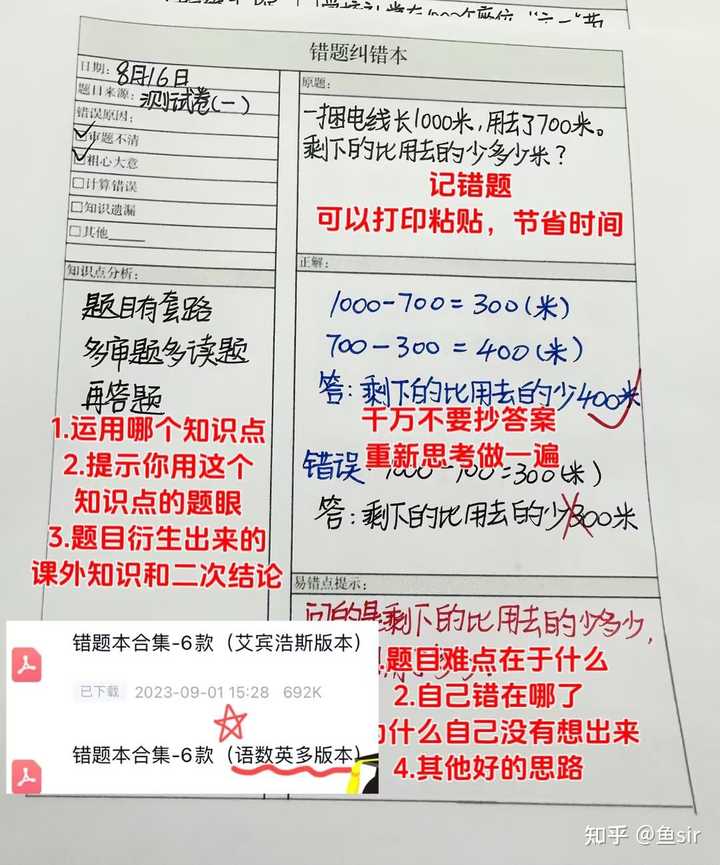 错题纠错本
日期: 8月16日
题目来源: 测试卷(一)
错误原因:
审题不清
粗心大意
计算错误
知识遗漏
其他
知识点分析:
题目有套路
多审题多读题
再答题
1.运用哪个知识点
2.提示你用这个
知识点的题眼
3.题目衍生出来的
课外知识和二次结论
原题:
一捆电线长1000米,用去了700米。
剩下的比用去的少多少米?
记错题
可以打印粘贴，节省时间
正解:
1000-700=300(米)
700-300=400(米)
答:剩下的比用去的少400米
千万不要抄答案
重新思考做一遍
错误: 1000-700=300(米)
答:剩下的比用去的少300米
易错点提示:
问的是剩下的比用去的少多少,
.题目难点在于什么
2.自己错在哪了
什么自己没有想出来
4.其他好的思路
错题本合集-6款（艾宾浩斯版本）
已下载 2023-09-01 15:28 692K
错题本合集-6款（语数英多版本）
知乎 @鱼sir